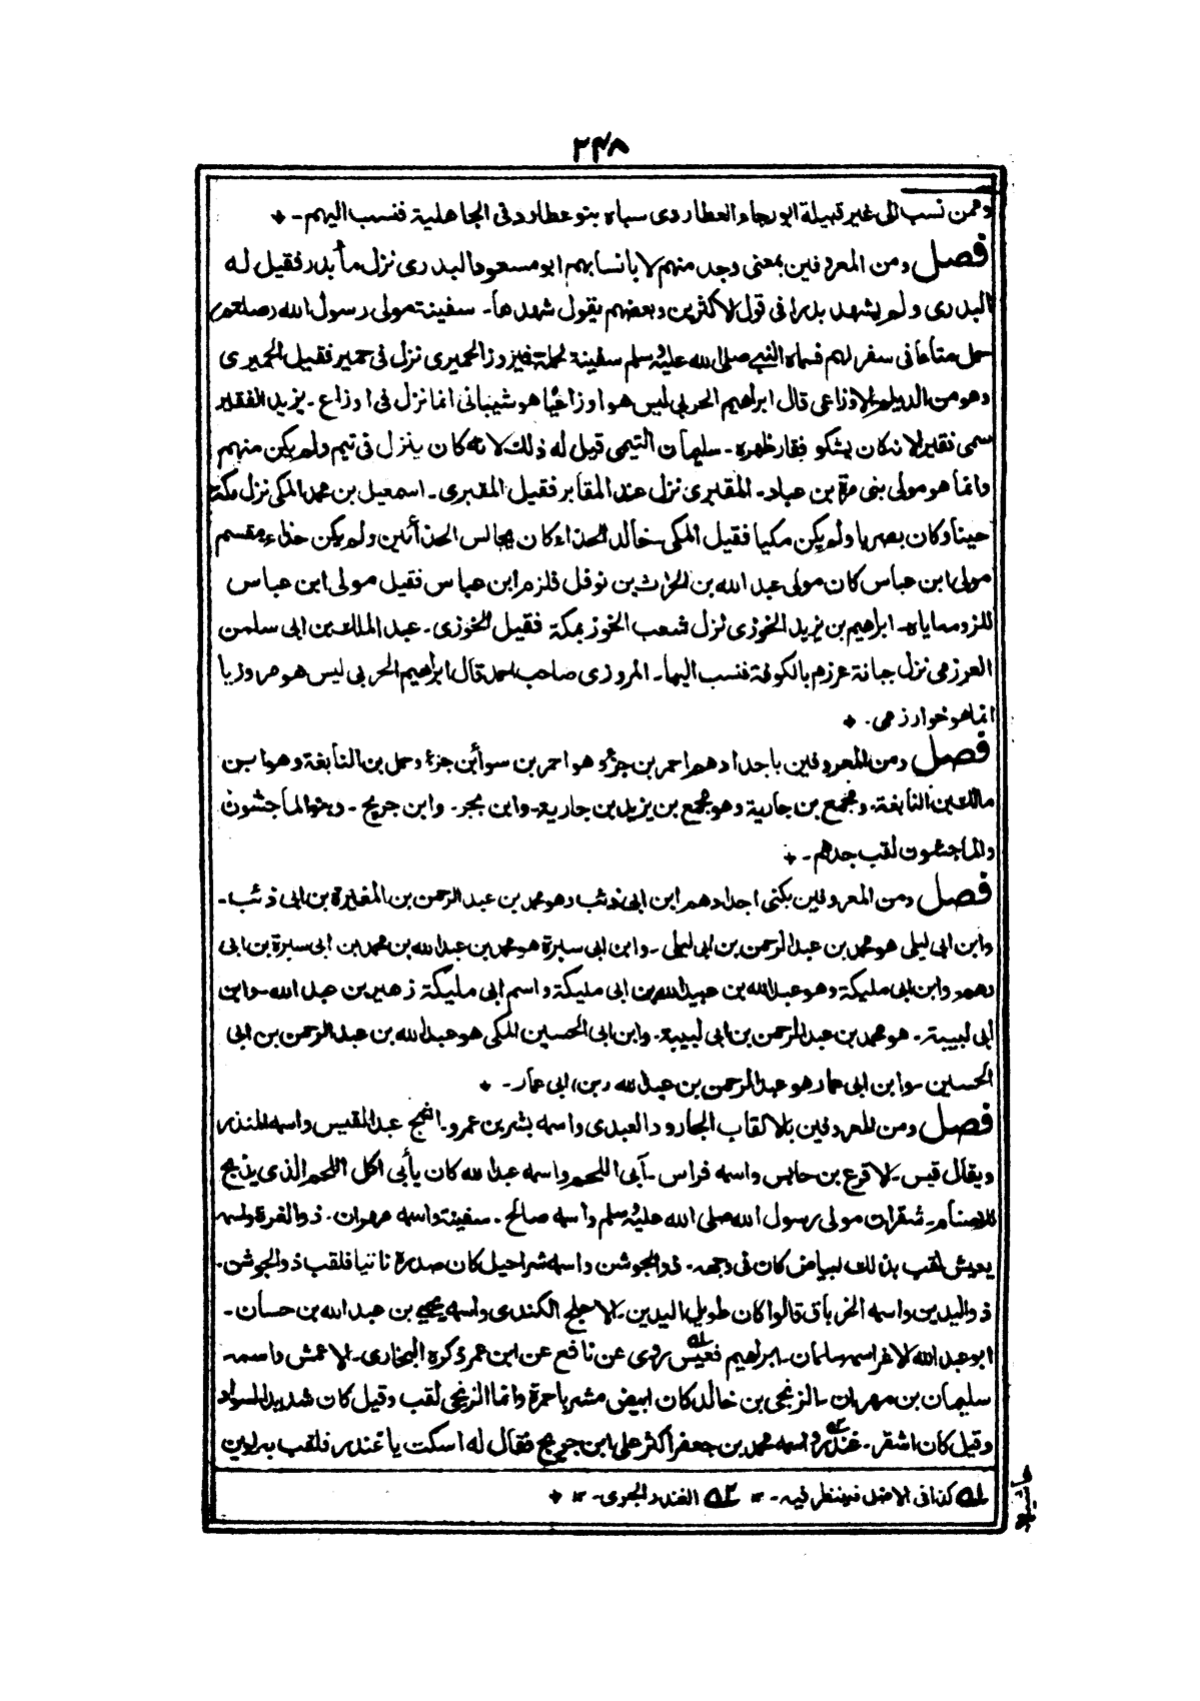 ۲۴۸
وممن نسب الى غير قبيلة ابو رجاء العطاردى سباه بنو عطارد فى الجاهلية فنسب اليهم ۔
فصل ومن المعروفين بمعنى وجد منهم لا بانسابهم ابو مسعود البدرى نزل ماء بدر فقيل له
البدرى ولم يشهد بدرا فى قول الاكثرين وبعضهم يقول شهدها ۔ سفينة مولى رسول الله صلعم
حمل متاعا فى سفر لهم فسماه النبي صلى الله عليه وسلم سفينة لحمله فيروز الحميرى نزل فى حمير فقيل الحميرى
وهو من الديلم الاوزاعى قال ابراهيم الحربى ليس هو اوزاعيا هو شيبانى انما نزل فى اوزاع ۔ يزيد الفقير
سمى فقيرا لانه كان يشكو فقار ظهره ۔ سليمان التيمى قيل له ذلك لانه كان ينزل فى تيم ولم يكن منهم
وانما هو مولى بنى مرة بن عباد ۔ المقبرى نزل عند المقابر فقيل المقبرى ۔ اسمعيل بن محمد المكى نزل مكة
حينا وكان بصريا ولم يكن مكيا فقيل المكى ۔ خالد الحذاء كان يجالس الحذائين ولم يكن حذاء ۔ مقسم
مولى ابن عباس كان مولى عبد الله بن الحرث بن نوفل فلزم ابن عباس فقيل مولى ابن عباس
للزومه اياه ۔ ابراهيم بن يزيد الخوزى نزل شعب الخوز بمكة فقيل الخوزى ۔ عبد الملك بن ابى سلمن
العرزمى نزل جبانة عرزم بالكوفة فنسب اليها ۔ المروزى صاحب احمد قال ابراهيم الحربى ليس هو مروزيا
انما هو خوارزمى ۔
فصل ومن المعروفين باجدادهم احمر بن جزء هو احمر بن سواء بن جزء وحمل بن النابغة وهو ابن
مالك بن النابغة ۔ ومجمع بن جارية وهو مجمع بن يزيد بن جارية ۔ وابن بجر ۔ وابن جريج ۔ وبنو الماجشون
والماجشون لقب جدهم ۔
فصل ومن المعروفين بكنى اجدادهم ابن ابى ذئب وهو محمد بن عبد الرحمن بن المغيرة بن ابى ذئب ۔
وابن ابى ليلى هو محمد بن عبد الرحمن بن ابى ليلى ۔ وابن ابى سبرة هو محمد بن عبد الله بن محمد بن ابى سبرة بن ابى
رهم ۔ وابن ابى مليكة وهو عبد الله بن عبيد الله بن ابى مليكة واسم ابى مليكة زهير بن عبد الله ۔ وابن
ابى لبيبة ۔ هو محمد بن عبد الرحمن بن ابى لبيبة ۔ وابن ابى الحسين المكى هو عبد الله بن عبد الرحمن بن ابى
الحسين ۔ وابن ابى عمار هو عبد الرحمن بن عبد الله بن ابى عمار ۔
فصل ومن المعروفين بالالقاب الجارود العبدى واسمه بشر بن عمرو ۔ اشج عبد القيس واسمه المنذر
ويقال قيس ۔ الاقرع بن حابس واسمه فراس ۔ آبى اللحم واسمه عبد الله كان يأبى اكل اللحم الذى يذبح
للاصنام ۔ شقران مولى رسول الله صلى الله عليه وسلم واسمه صالح ۔ سفينة واسمه مهران ۔ ذو الغرة واسمه
يعيش لقب بذلك لبياض كان فى وجهه ۔ ذو الجوشن واسمه شراحيل كان صدره ناتيا فلقب ذو الجوشن ۔
ذو اليدين واسمه الخرباق قالوا كان طويل اليدين ۔ الاجلح الكندى واسمه يحيى بن عبد الله بن حسان ۔
ابو عبد الله الاغر اسمه سلمان ۔ ابراهيم قعيس يروى عن نافع عن ابن عمر ذكره البخارى ۔ الاعمش واسمه
سليمان بن مهران ۔ الزنجى بن خالد كان ابيض مشربا حمرة وانما الزنجى لقب وقيل كان شديد السواد
وقيل كان اشقر ۔ غندر واسمه محمد بن جعفر اكثر على ابن جريج فقال له اسكت يا غندر فلقب به ۔ لوين
۱ كذا فى الاصل فينظر فيه ۔ ۱۲ ۲ الغندر الجوى ۔ ۱۲